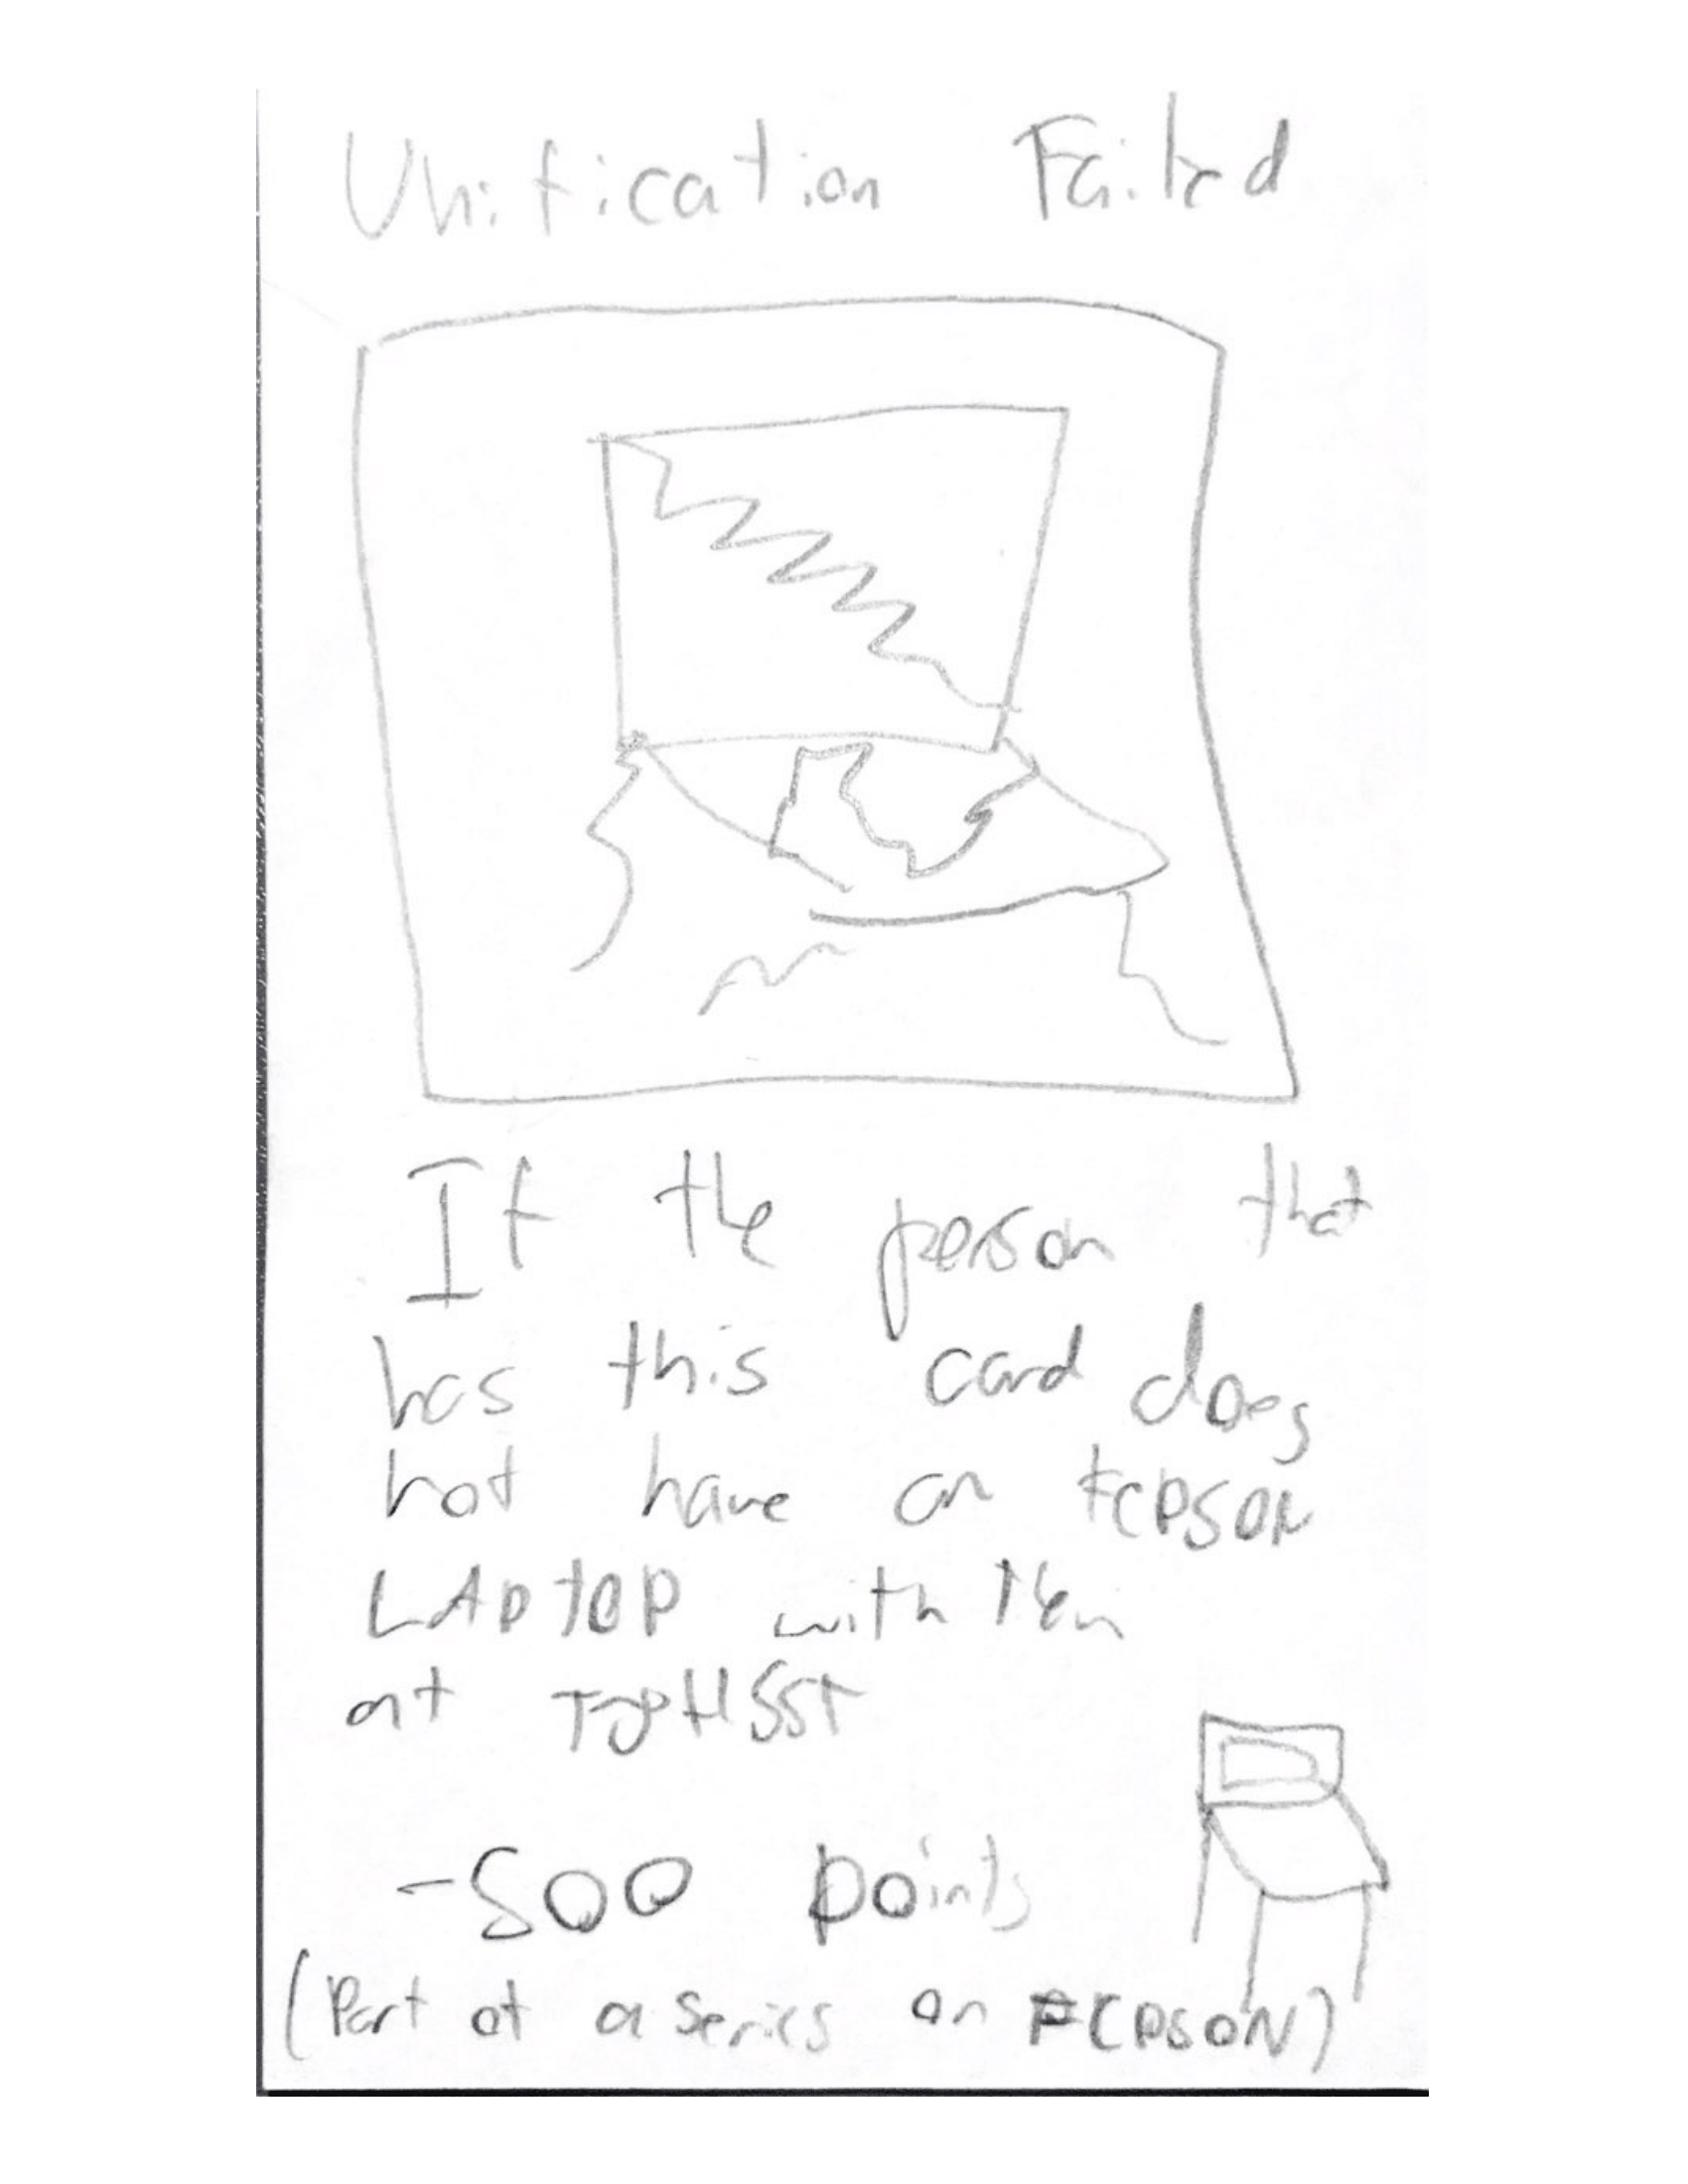 Unification Failed
If the person that
has this card does
not have an FCPSON
LAPTOP with them
at TJHSST
-500 points
(Part of a series on FCPSON)